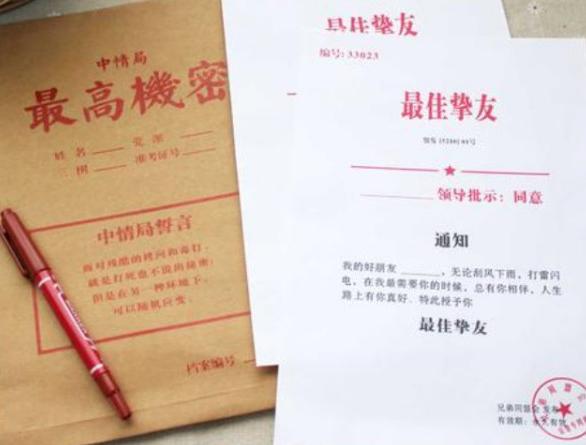 中情局
最高機密
姓名 党派
三树 准考证号
中情局誓言
面对残酷的拷问和毒打,
就是打死也不说的秘密;
但是在另一种环境下,
可以随机应变。
档案编号
最佳挚友
编号: 33023
最佳挚友
领导批示: 同意
通知
我的好朋友 ______, 无论刮风下雨, 打雷闪
电, 在我最需要你的时候, 总有你相伴, 人生
路上有你真好. 特此授予你
最佳挚友
兄弟同盟会 发布
有效期: 永久有效